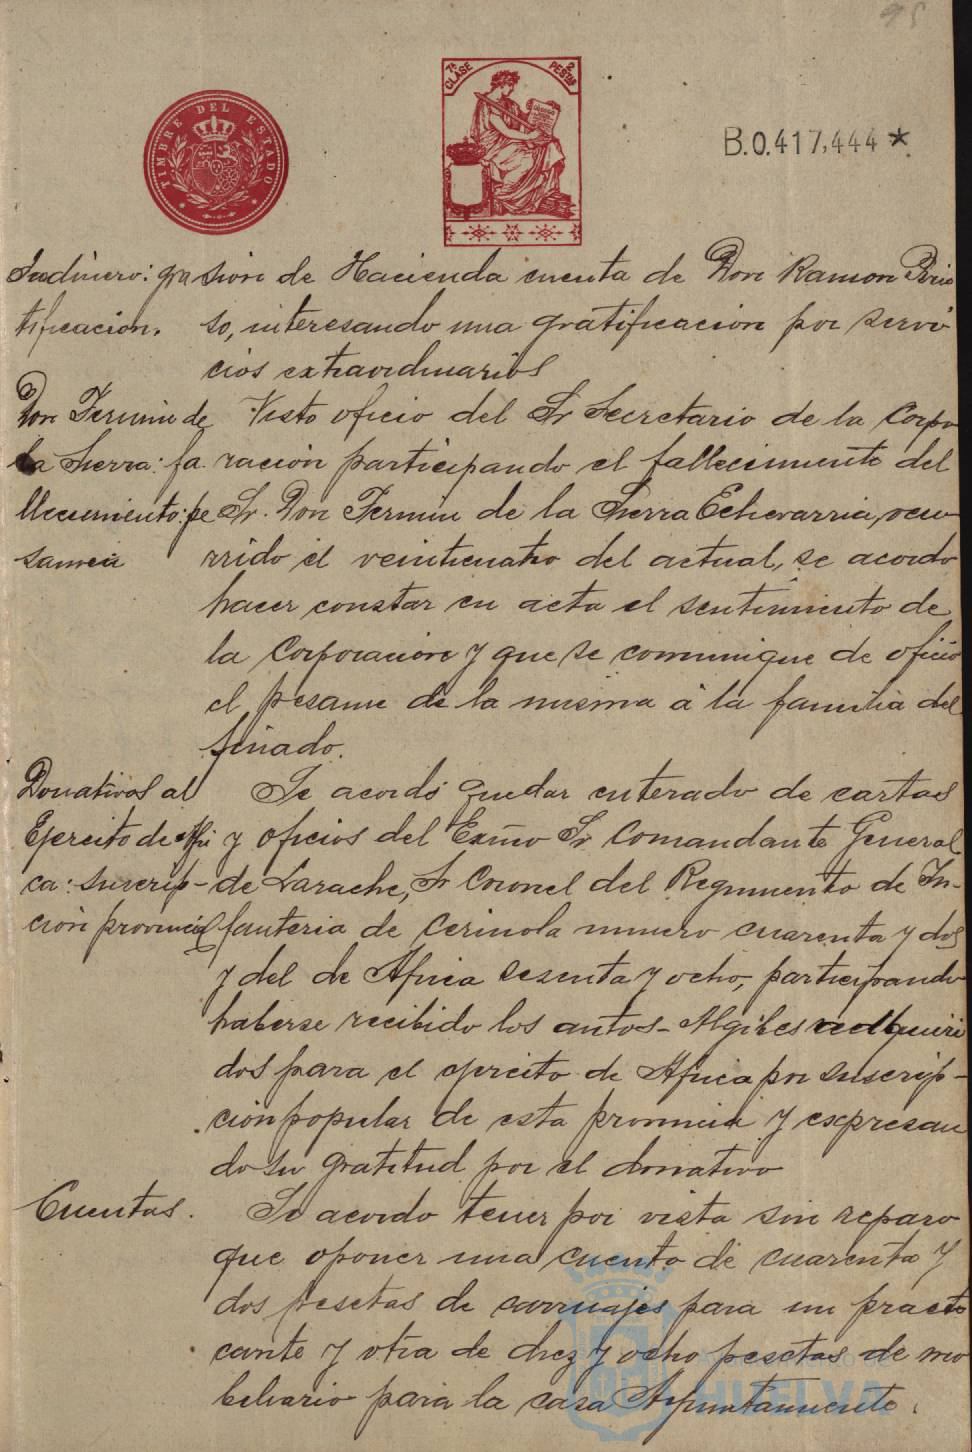 95
TIMBRE DEL ESTADO
7ª CLASE 2 PESTAS
B.0.417,444 *
Jardinero: gra
tificacion.
sion de Hacienda cuenta de Don Ramon
so, interesando una gratificacion por servi
cios extraordinarios
Don Fermin de
la Sierra: fa
llecimiento: pe
same
Visto oficio del Sr Secretario de la Corpo
ración participando el fallecimiento del
Sr. Don Fermin de la Sierra Echevarria, ocu
rrido el veinticuatro del actual, se acordo
hacer constar en acta el sentimiento de
la Corporacion y que se comunique de oficio
el pesame de la misma á la familia del
finado.
Donativos al
Ejercito de Afri
ca: suscrip-
ción provincial
Se acordó quedar enterado de cartas
y oficios del Exmo Sr Comandante General
de Larache, Sr Coronel del Regimiento de In-
fanteria de Cerinola numero cuarenta y dos
y del de Africa sesenta y ocho, participando
haberse recibido los autos-Algibes adquiri
dos para el ejercito de Africa por suscrip-
ción popular de esta provincia y expresan
do su gratitud por el donativo
Cuentas.
Se acordo tener por vista sin reparo
que oponer una cuenta de cuarenta y
dos pesetas de carruajes para un practi
cante y otra de diez y ocho pesetas de mo
biliario para la casa Ayuntamiento.
AYUNTAMIENTO DE
HUELVA